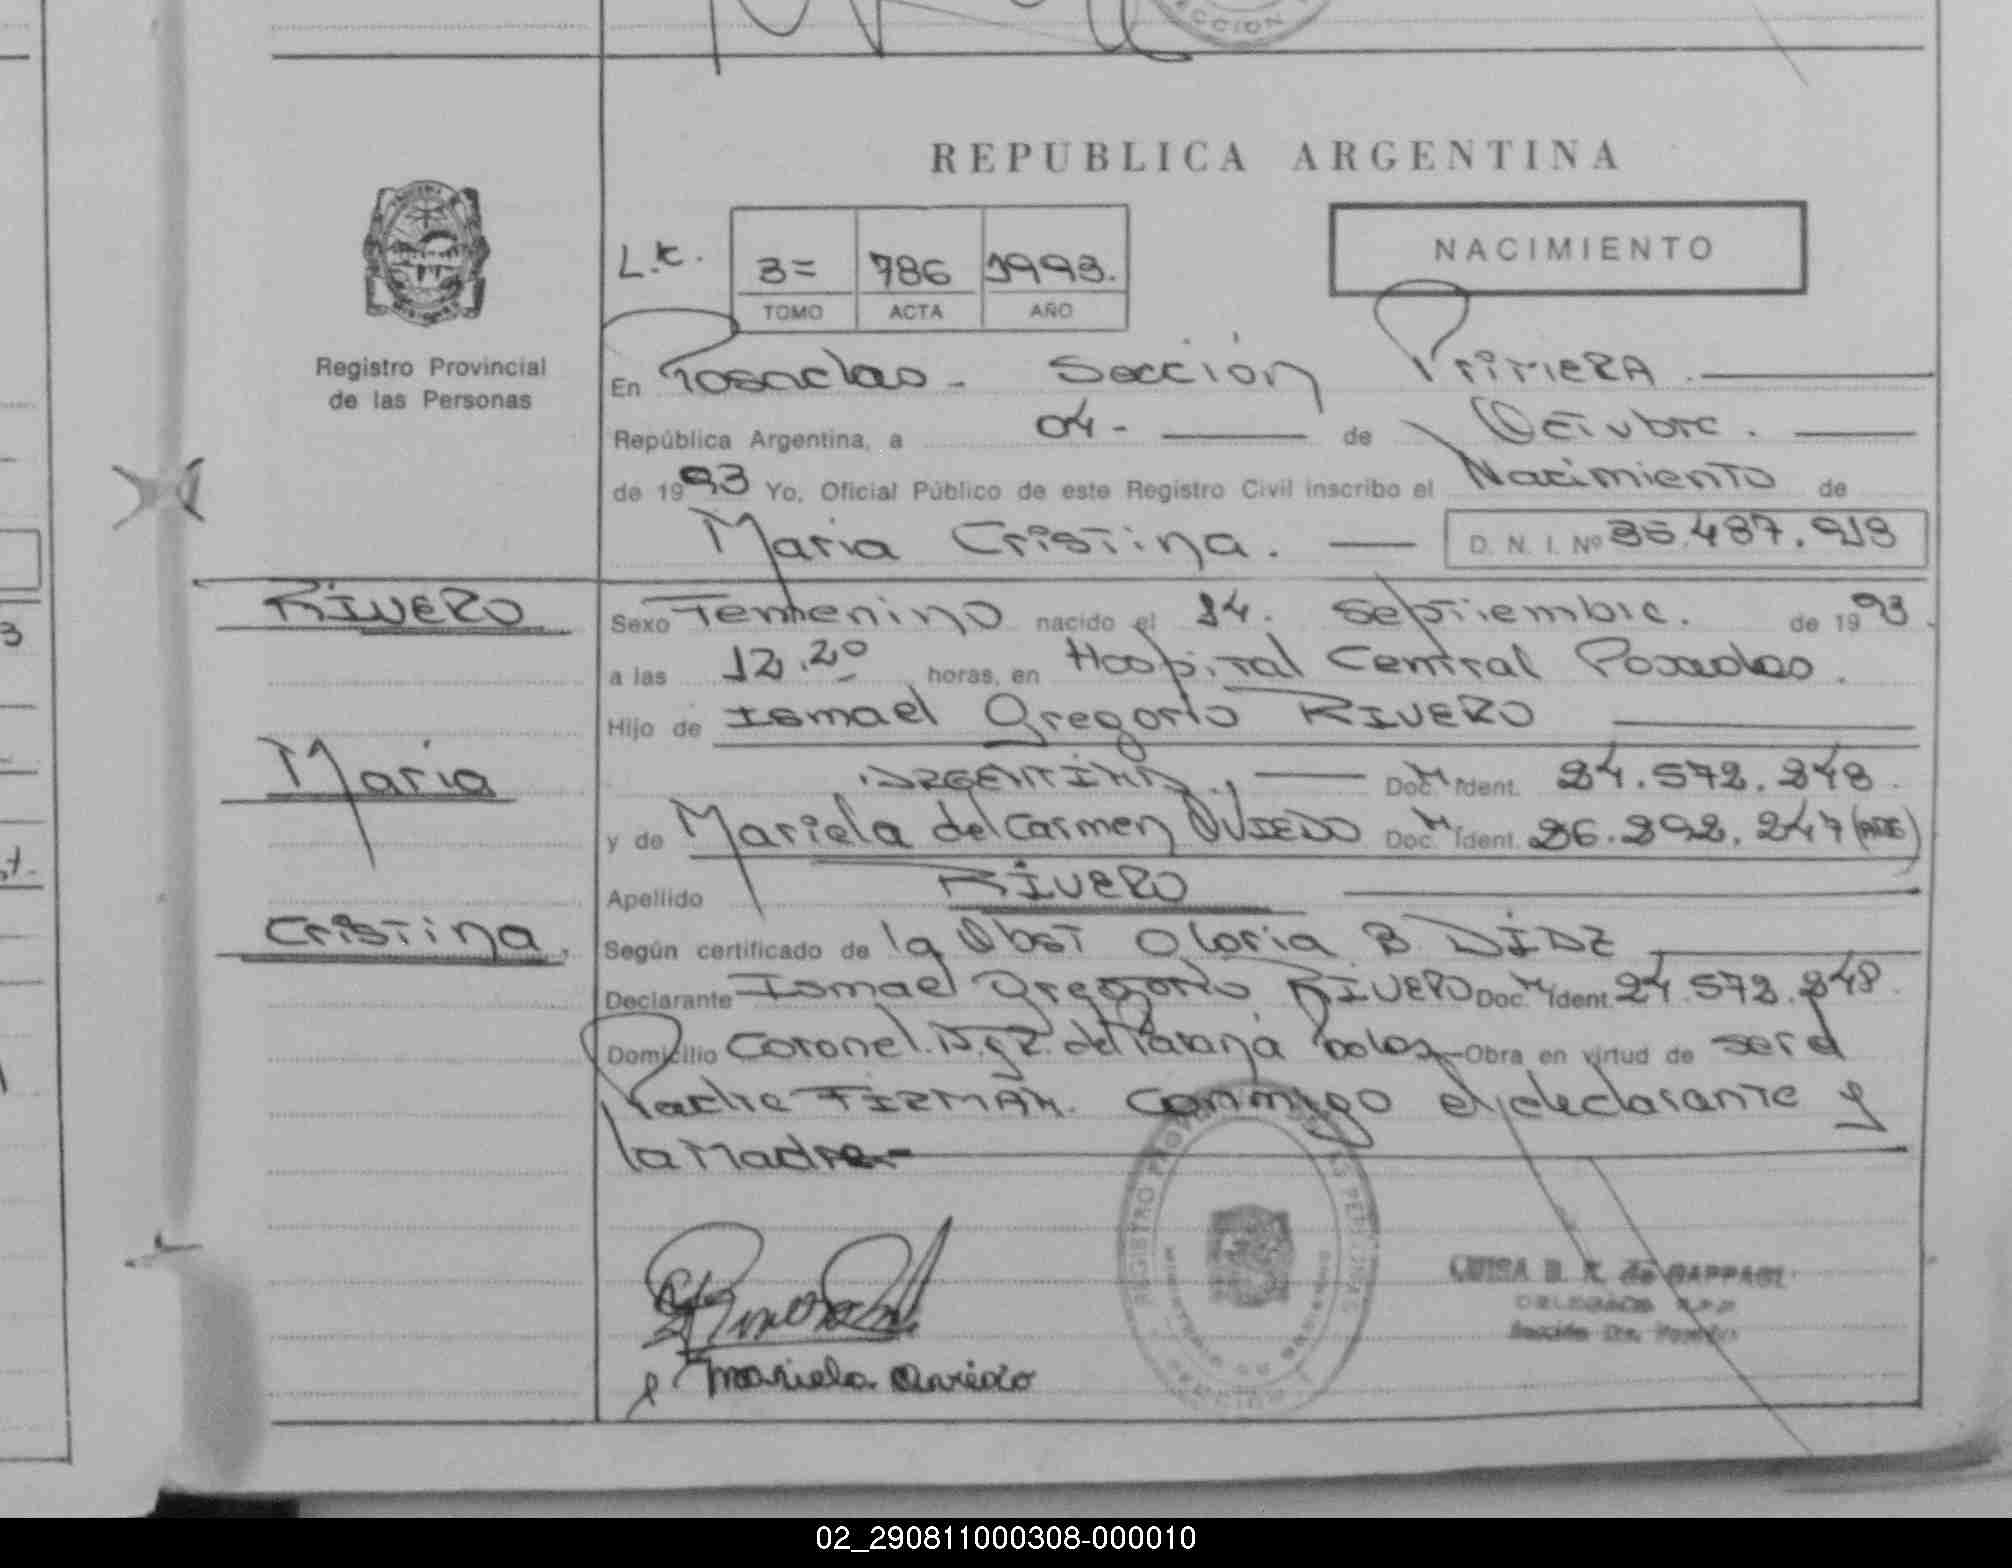 CCION
REPUBLICA ARGENTINA
NACIMIENTO
L.c. 3= 786 1993.
TOMO ACTA AÑO
Registro Provincial
de las Personas
En Posadas - Sección Primera.
República Argentina, a 04- de Octubre.
de 1993 Yo, Oficial Público de este Registro Civil inscribo el Nacimiento de
Maria Cristina. D. N. I. Nº
RIVERO
Sexo Femenino nacido el Septiembre. de 1993.
a las 12.20 horas, en Hospital Central Posadas.
Hijo de Ismael Gregorio RIVERO
Maria
ARGENTINA., Doc. Ident. 24.572.248
y de Mariela del Carmen OVIEDO Doc. Ident. 26.292.247
Apellido RIVERO
Cristina.
Según certificado de la Obst Gloria B. DIAZ
Declarante Ismael Gregorio RIVERO Doc. Ident. 24.572.248
Domicilio Coronel. del Paraná Obra en virtud de ser el
Padre FIRMAN. Conmigo el declarante y
la Madre.-
REGISTRO DE LAS PERSONAS
Mariela Oviedo
LUISA B. K. de
02_290811000308-000010